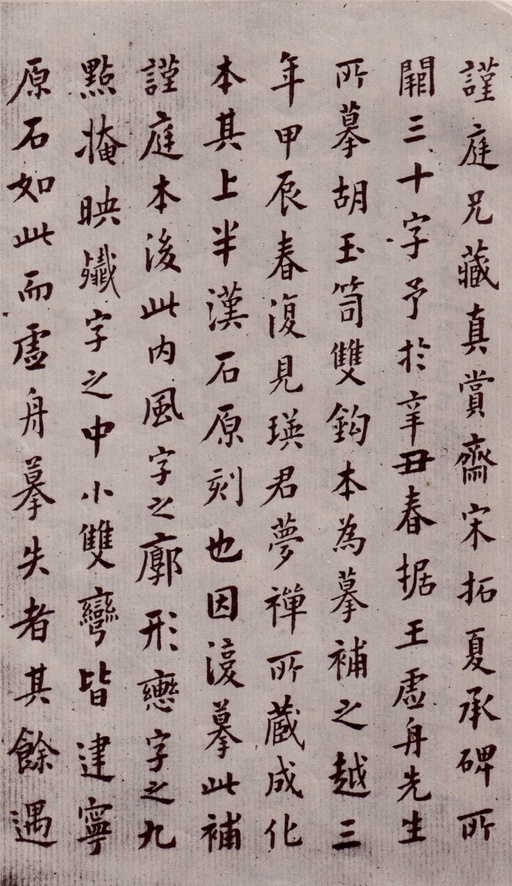 謹庭兄藏真賞齋宋拓夏承碑所
闕三十字予於辛丑春据王虛舟先生
所摹胡玉笥雙鈎本為摹補之越三
年甲辰春復見瑛君夢禪所藏成化
本其上半漢石原刻也因復摹此補
謹庭本後此内風字之廓形戀字之九
點掩映殲字之中小雙彎皆建寧
原石如此而虛舟摹失者其餘遇